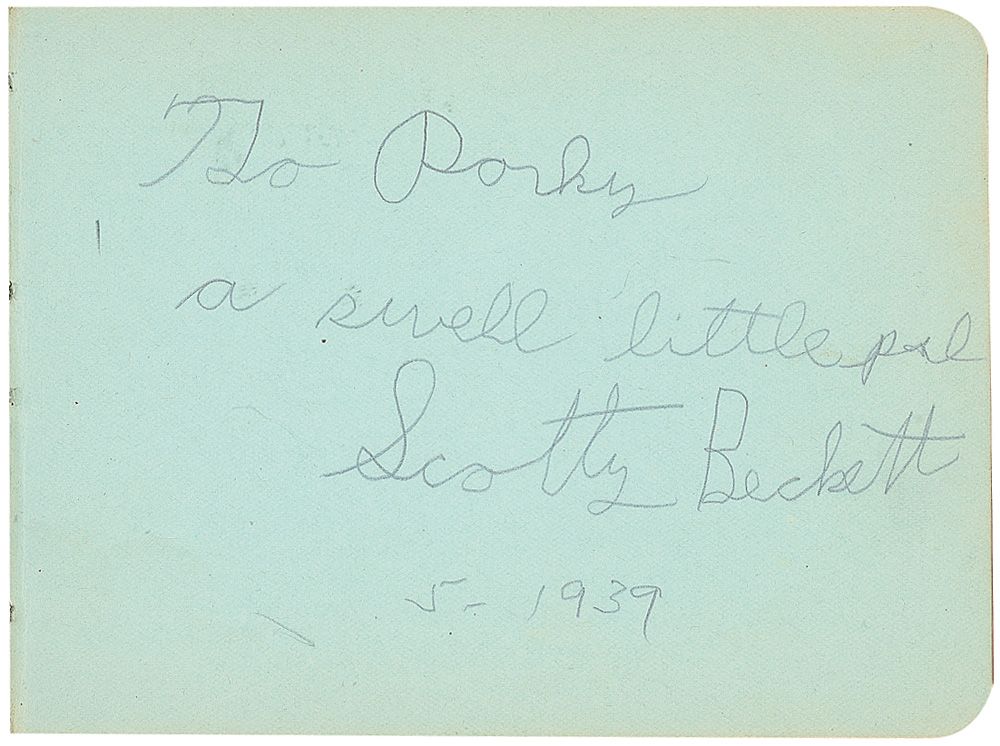 To Porky
a swell little pal
Scotty Beckett
5- 1939